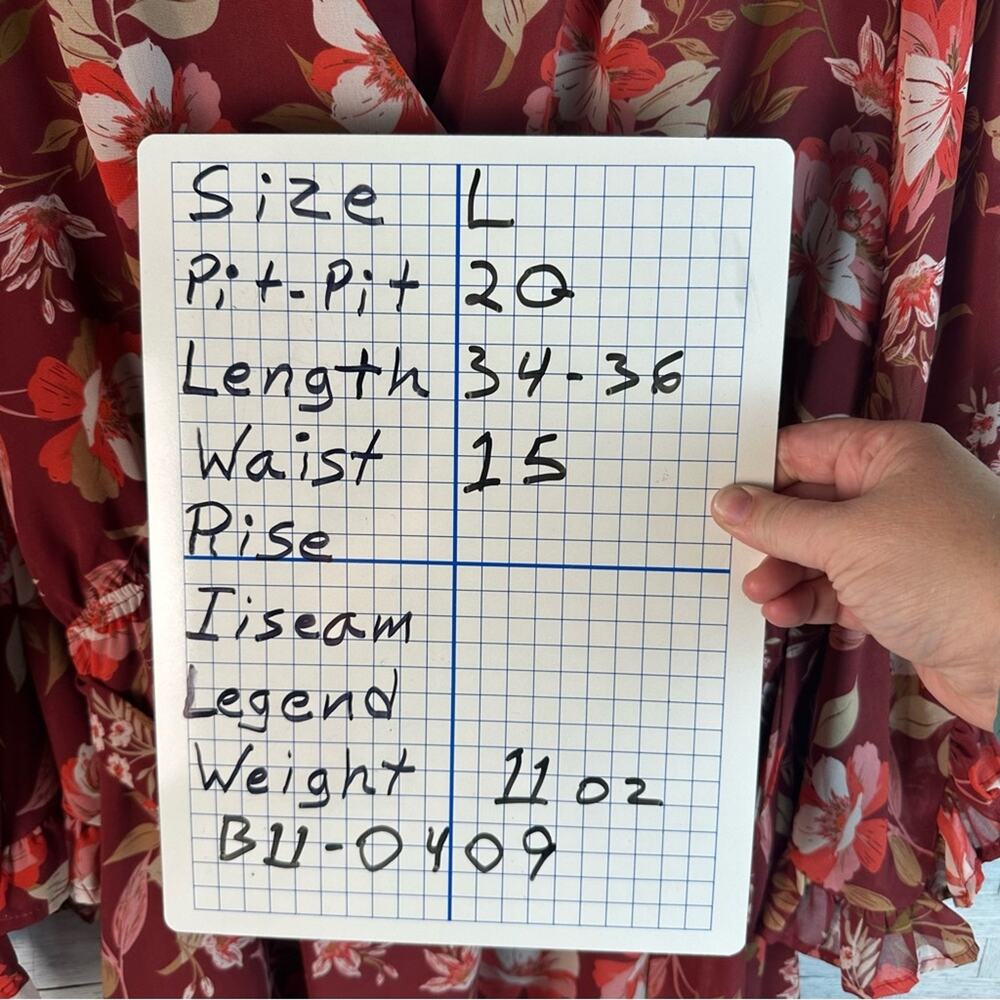 Size L
Pit-Pit 20
Length 34-36
Waist 15
Rise
Iiseam
Legend
Weight 11 oz
B11-0409